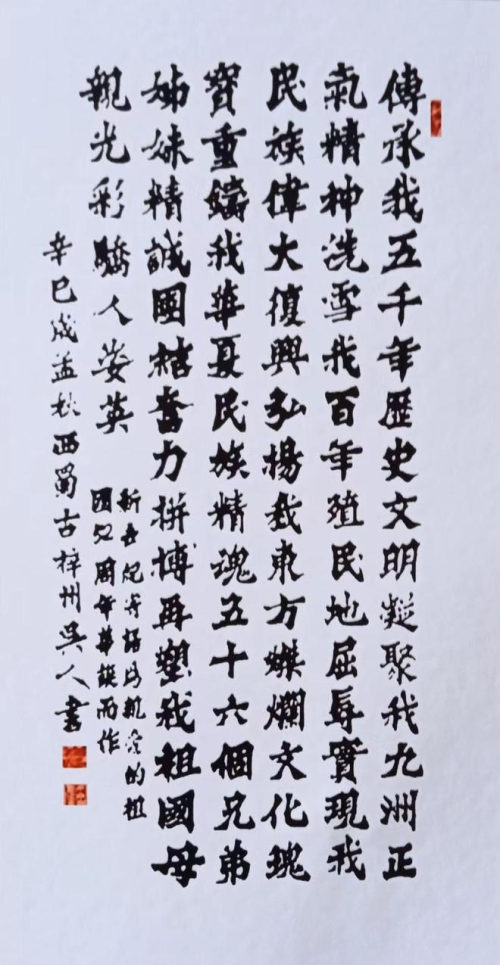 傳承我五千年歷史文明凝聚我九洲正
氣精神洗雪我百年殖民地屈辱實現我
民族偉大復興弘揚我東方燦爛文化瑰
寶重鑄我華夏民族精魂五十六個兄弟
姊妹精誠團結奮力拼搏再塑我祖國母
親光彩驕人姿英
新世紀寄語為親愛的祖
國 周年華誕而作
辛巳歲孟秋西蜀古梓州吳人書